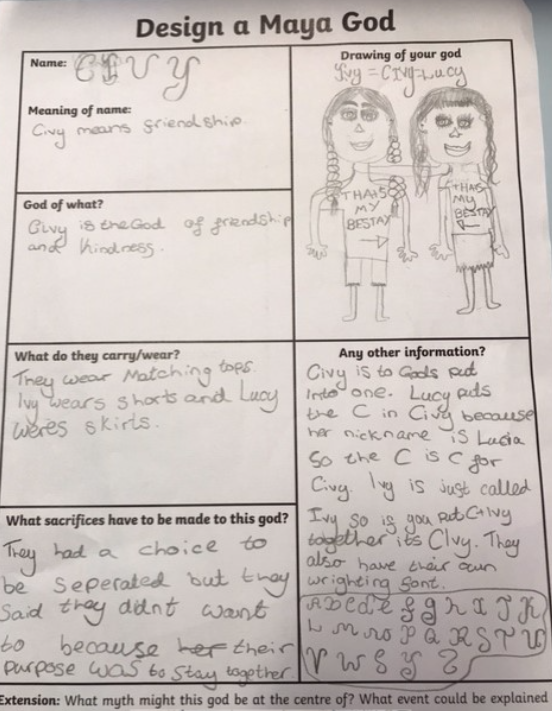 Design a Maya God
Name: CIVY
Meaning of name:
Civy means friendship.
God of what?
Civy is the God of friendship
and kindness.
What do they carry/wear?
They wear Matching tops.
Ivy wears shorts and Lucy
weres skirts.
What sacrifices have to be made to this god?
They had a choice to
be seperated but they
said they didnt want
to because her their
purpose was to stay together.
Drawing of your god
Ivy = CIvy = Lucy
THATS
MY
BESTAY
THAS
MY
BESTAY
Any other information?
Civy is to Gods put
into one. Lucy puts
the C in Civy because
her nickname is Lucia
So the C is C for
Civy. Ivy is just called
Ivy so is you put C+Ivy
together its CIvy. They
also have their own
wrighting font.
A b c d e f g h I J K
L m n o P Q R S T U
V W S Y Z
Extension: What myth might this god be at the centre of? What event could be explained